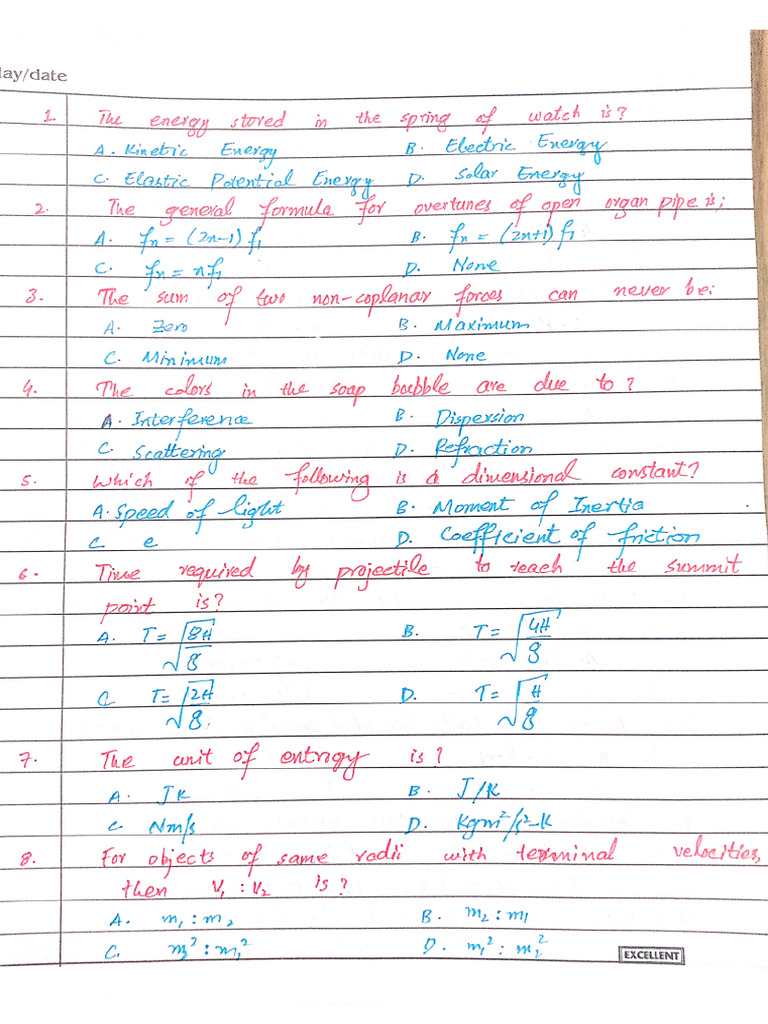 day/date
1. The energy stored in the spring of watch is?
A. Kinetic Energy B. Electric Energy
C. Elastic Potential Energy D. Solar Energy
2. The general formula for overtunes of open organ pipe is;
A. fn = (2n-1) f1 B. fn = (2n+1) f1
C. fn = nf1 D. None
3. The sum of two non-coplanar forces can never be:
A. Zero B. Maximum
C. Minimum D. None
4. The colors in the soap bubble are due to?
A. Interference B. Dispersion
C. Scattering D. Refraction
5. Which of the following is a dimensional constant?
A. Speed of light B. Moment of Inertia
C. e D. Coefficient of friction
6. Time required by projectile to reach the summit
point is?
A. T = √8H/g B. T = √4H/g
C. T = √2H/g D. T = √H/g
7. The unit of entropy is?
A. JK B. J/K
C. Nm/s D. Kgm²/s²-K
8. For objects of same radii with terminal velocities,
then v₁ : v₂ is?
A. m₁ : m₂ B. m₂ : m₁
C. m₂² : m₁² D. m₁² : m₂²
EXCELLENT